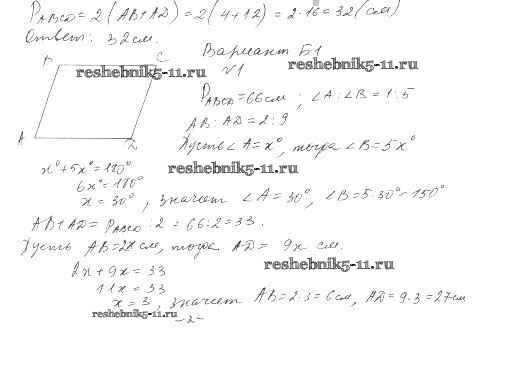 P_ABCD = 2(AB+AD) = 2(4+12) = 2·16 = 32 (см)
Ответ: 32 см.
Вариант Б1
B C
reshebnik5-11.ru reshebnik5-11.ru
№1
P_ABCD = 66 см ; ∠A : ∠B = 1 : 5
AB : AD = 2 : 9
A D Пусть ∠A = x°, тогда ∠B = 5x°
x° + 5x° = 180° reshebnik5-11.ru
6x° = 180°
x = 30°, значит ∠A = 30°, ∠B = 5·30° = 150°
AB + AD = P_ABCD : 2 = 66 : 2 = 33.
Пусть AB = 2x см, тогда AD = 9x см.
2x + 9x = 33 reshebnik5-11.ru
11x = 33
x = 3, значит AB = 2·3 = 6 см, AD = 9·3 = 27 см
reshebnik5-11.ru
–2–